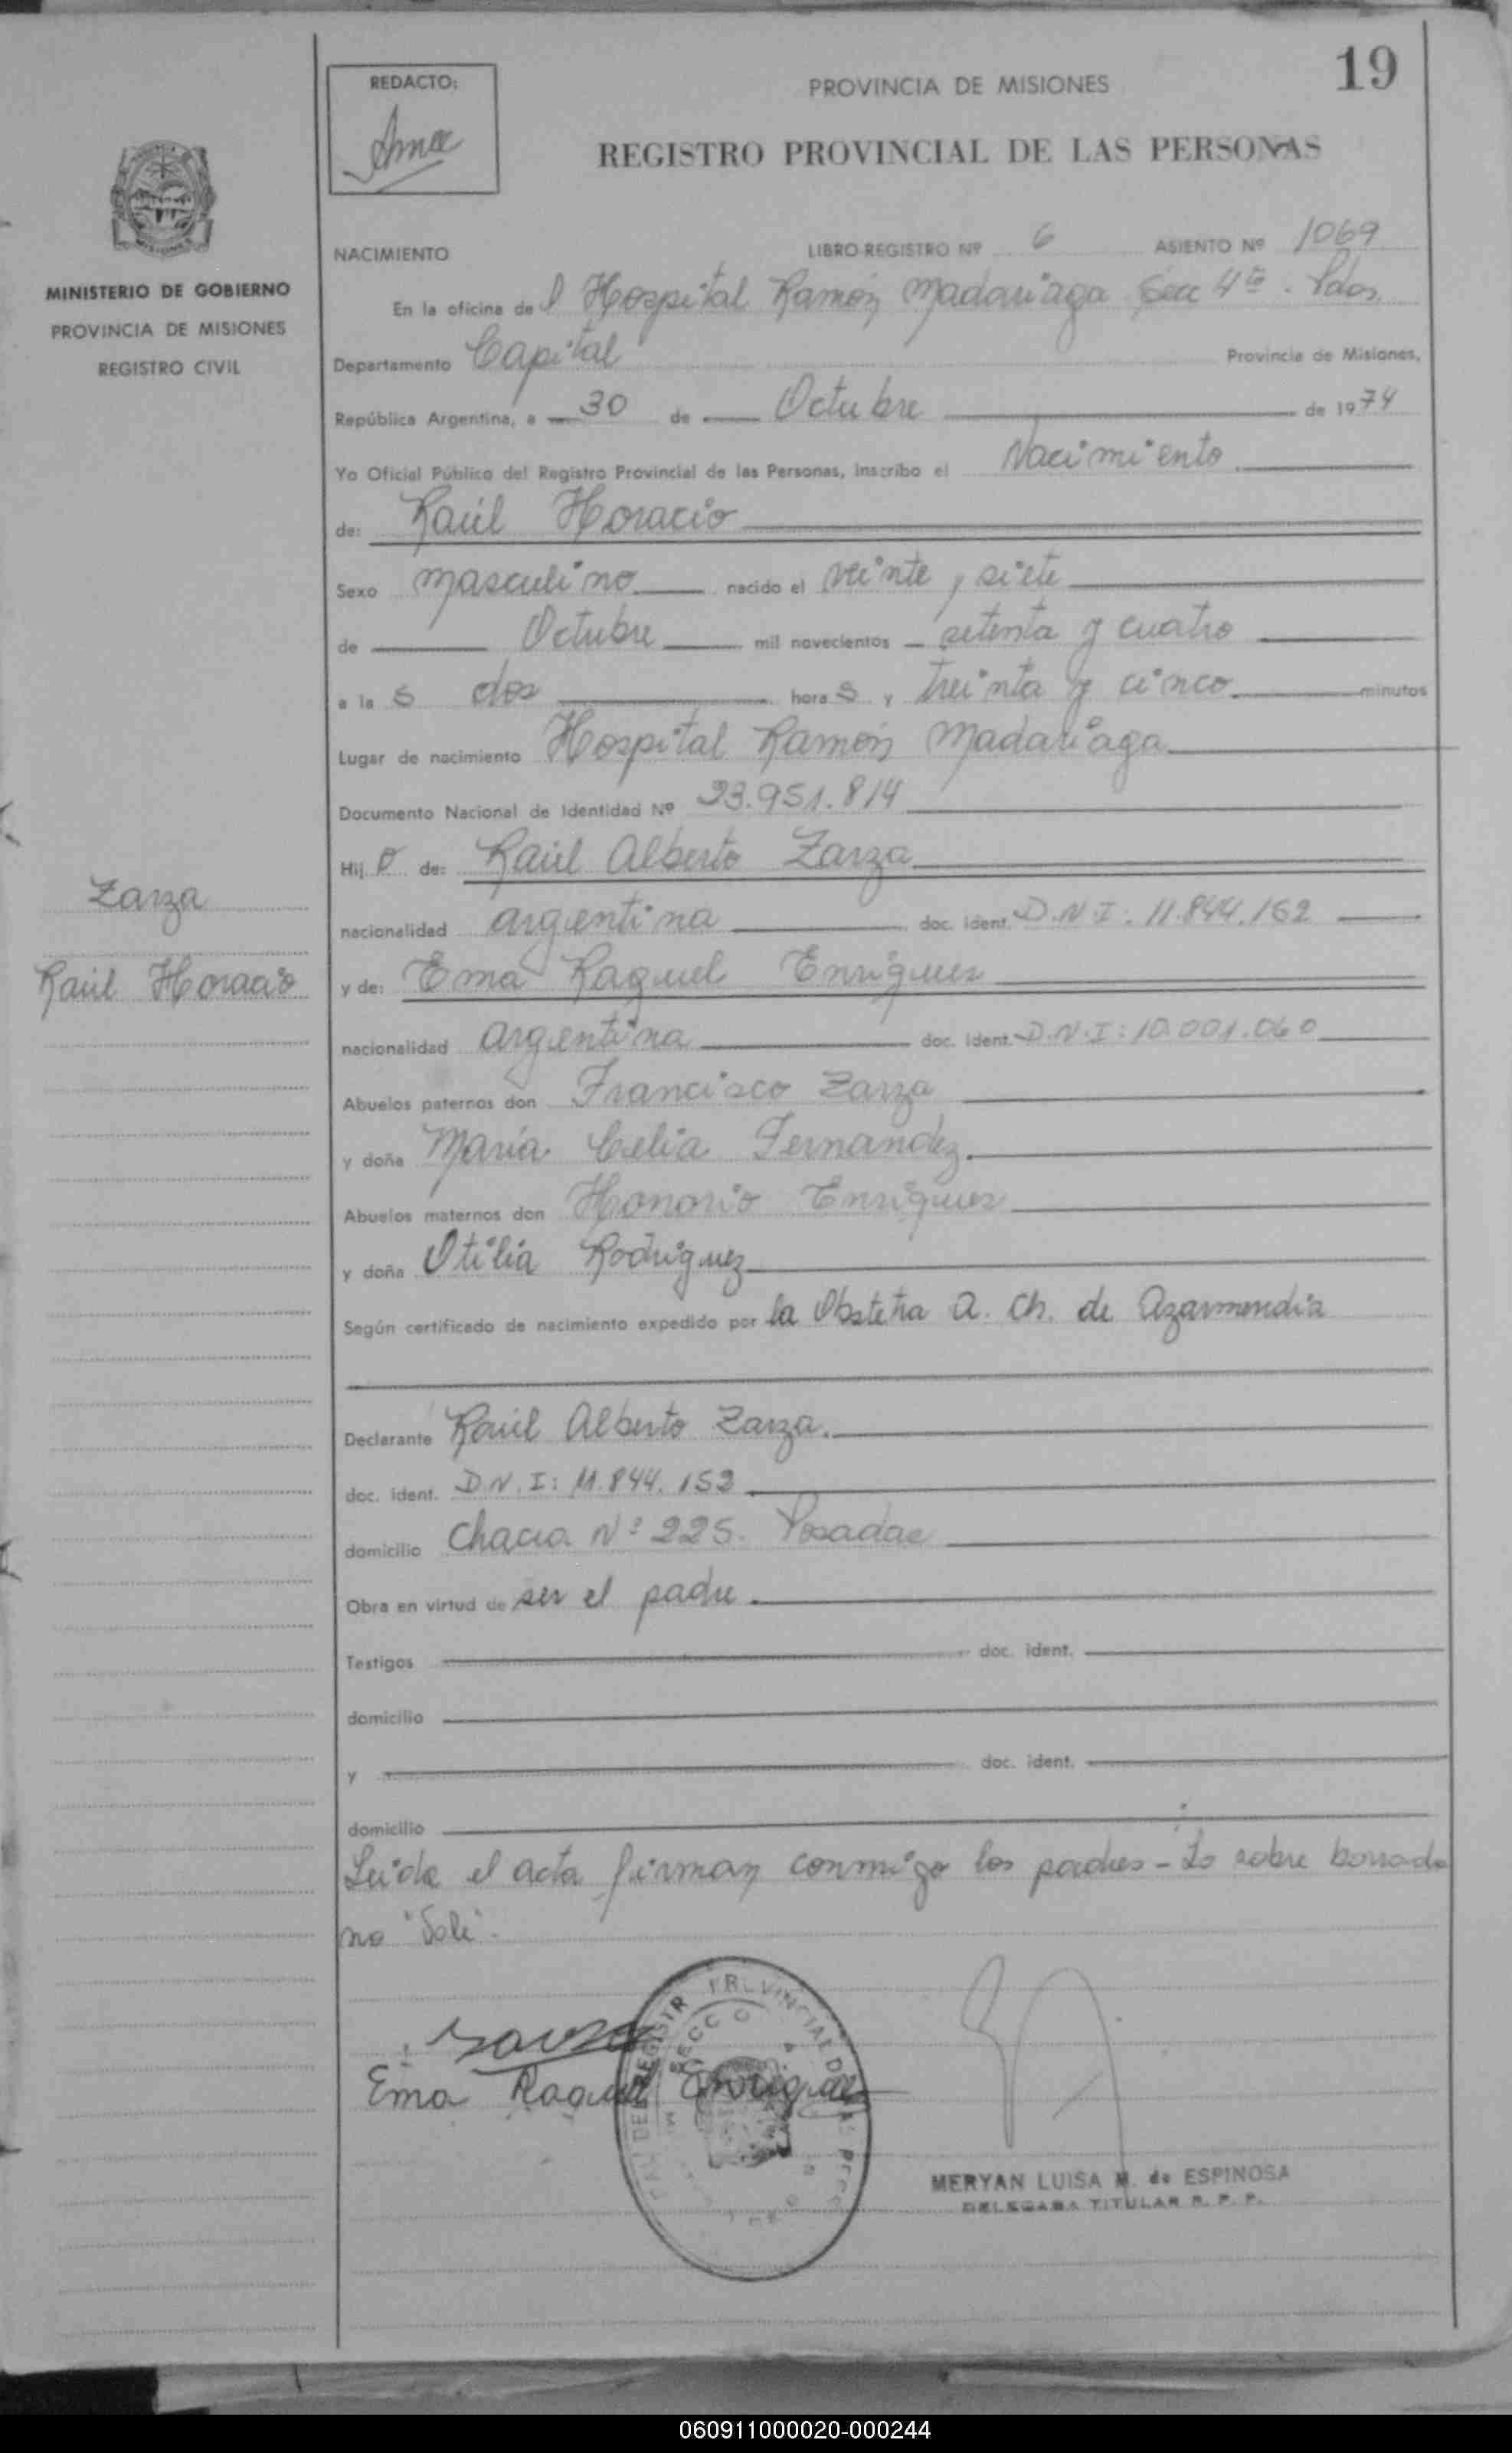 19
REDACTO:
PROVINCIA DE MISIONES
REGISTRO PROVINCIAL DE LAS PERSONAS
NACIMIENTO LIBRO-REGISTRO Nº 6 ASIENTO Nº 1069
MINISTERIO DE GOBIERNO
PROVINCIA DE MISIONES
REGISTRO CIVIL
En la oficina del Hospital Ramón Madariaga Secc 4ta. Pdas.
Departamento Capital Provincia de Misiones,
República Argentina, a 30 de Octubre de 1974
Yo Oficial Público del Registro Provincial de las Personas, inscribo el Nacimiento
de: Raúl Horacio
Sexo masculino nacido el veinte y siete
de Octubre mil novecientos setenta y cuatro
a las dos horas y treinta y cinco minutos
Lugar de nacimiento Hospital Ramón Madariaga
Documento Nacional de Identidad Nº 23.951.814
Hijo de: Raúl Alberto Zarza
Zarza
nacionalidad argentina doc. ident. D.N.I: 11.844.152
Raúl Horacio
y de: Ema Raquel Enriquez
nacionalidad argentina doc. ident. D.N.I: 10.001.060
Abuelos paternos don Francisco Zarza
y doña María Celia Fernandez.
Abuelos maternos don Honorio Enriquez
y doña Otilia Rodriguez
Según certificado de nacimiento expedido por la Obstetra A. Ch. de Azarmendia
Declarante Raúl Alberto Zarza.
doc. ident. D.N.I: 11.844.152
domicilio Chacra Nº 225. Posadas
Obra en virtud de ser el padre.
Testigos doc. ident.
domicilio
y doc. ident.
domicilio
Leída el acta firman conmigo los padres - Lo sobre borrado
no "Vale".
Ema Raquel Enriquez
MERYAN LUISA M. de ESPINOSA
DELEGADA TITULAR R. P. P.
060911000020-000244